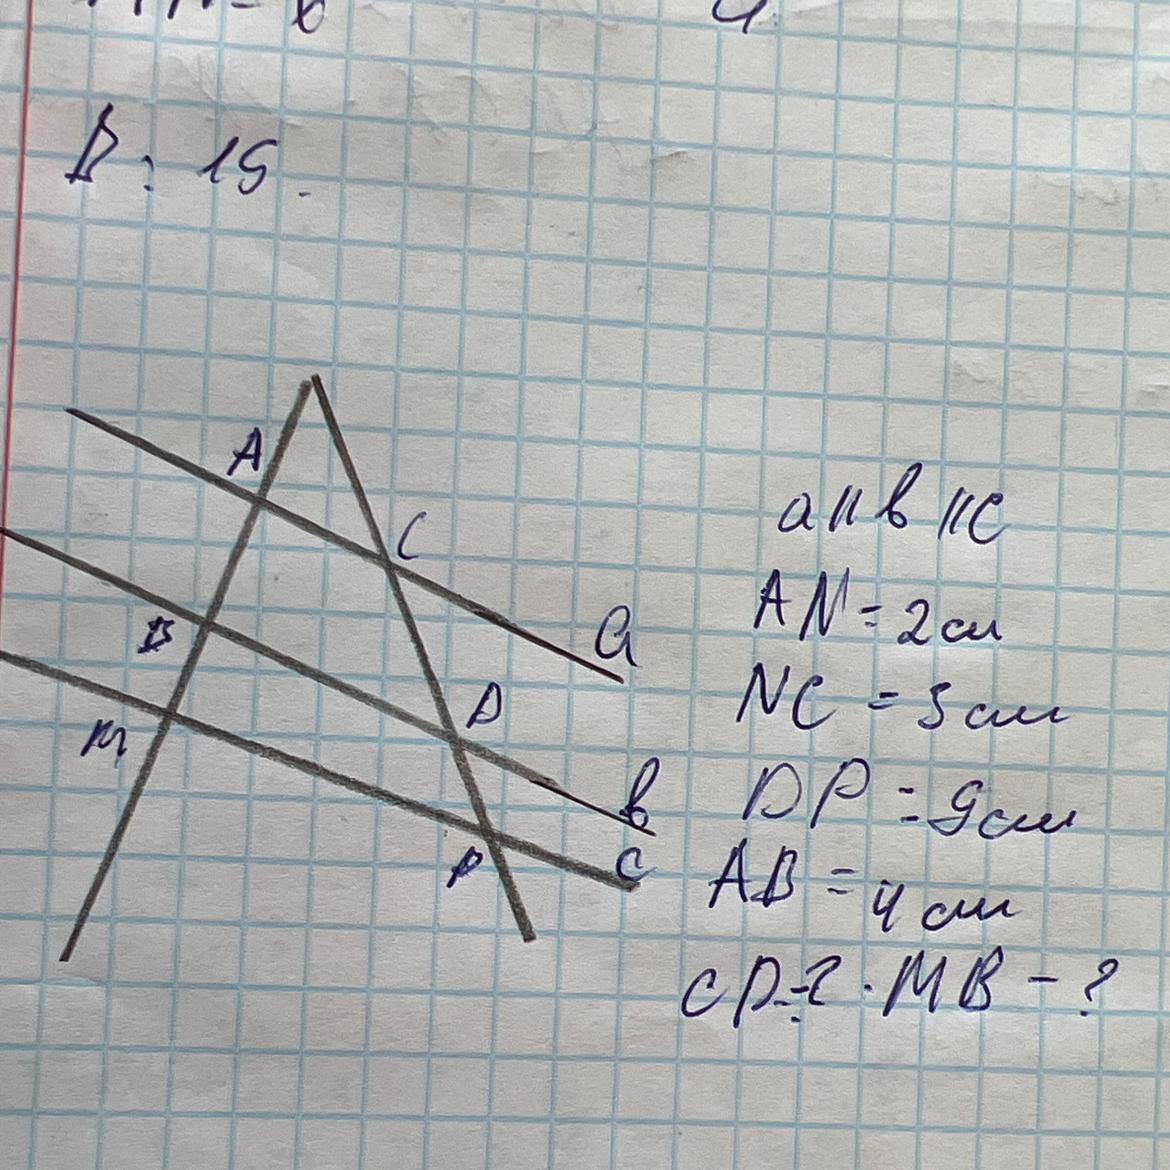 В: 15.
A
C
a
B
D
M
b
P
c
a || b || c
AN = 2 см
NC = 3 см
DP = 9 см
AB = 4 см
CD = ? . MB - ?